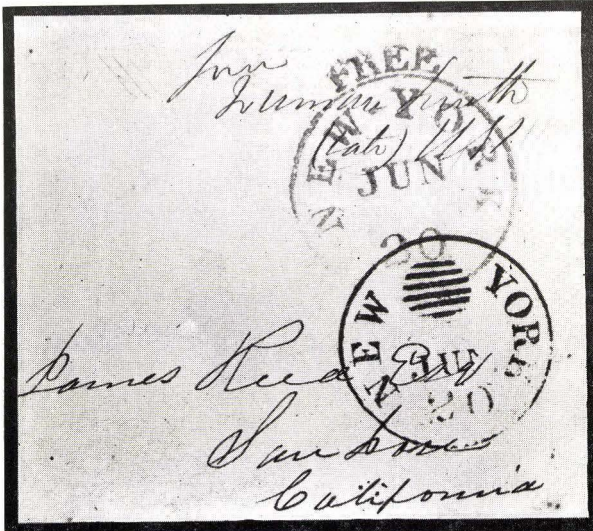 FREE
Truman Smith
(late) U.S.S
NEW-YORK
JUN
20
NEW YORK
JUN
20
James Reed Esqr
San Jose
California